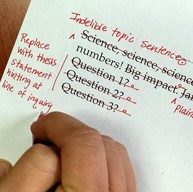 Indelible topic sentences
Replace
with thesis
statement
hinting at
line of inquiry
Science, science, science
numbers! Big impact.
Question 1?
Question 2?
Question 3?